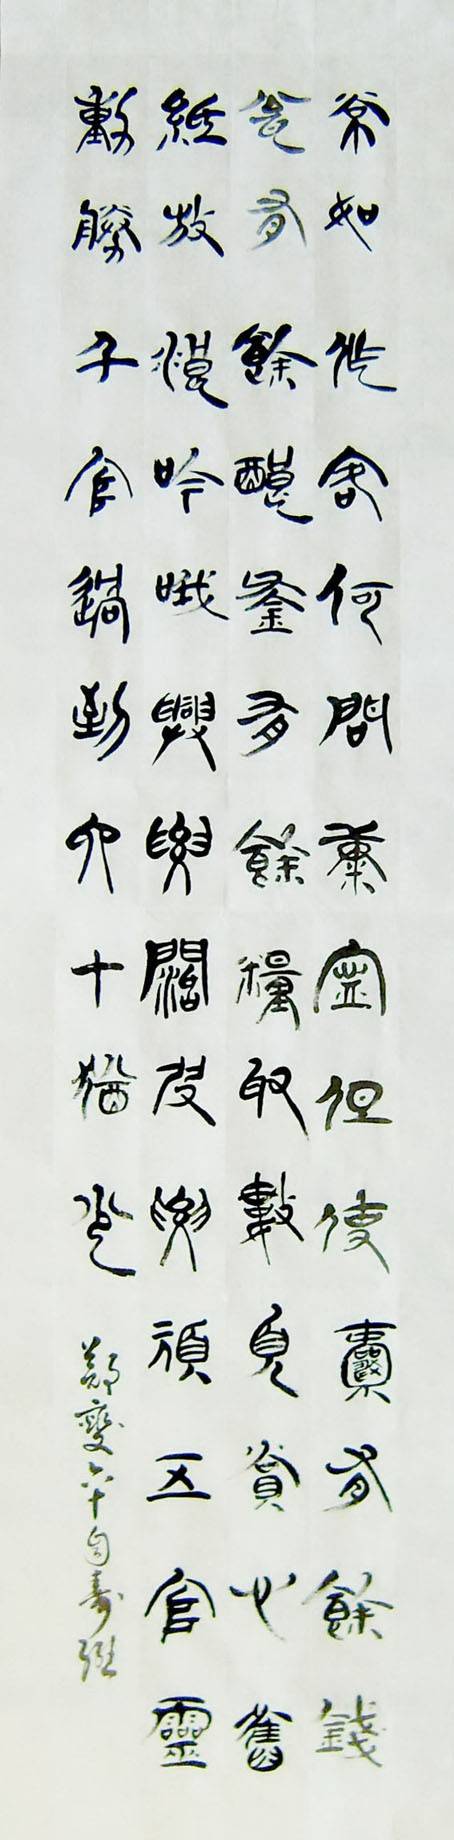 常如作客何問康寧但使囊有餘錢
甕有餘釀釜有餘糧取數頁賞心舊
紙放浪吟哦興要闊皮要頑五官靈
動勝千官過到六十猶少
鄭燮六十自壽聯